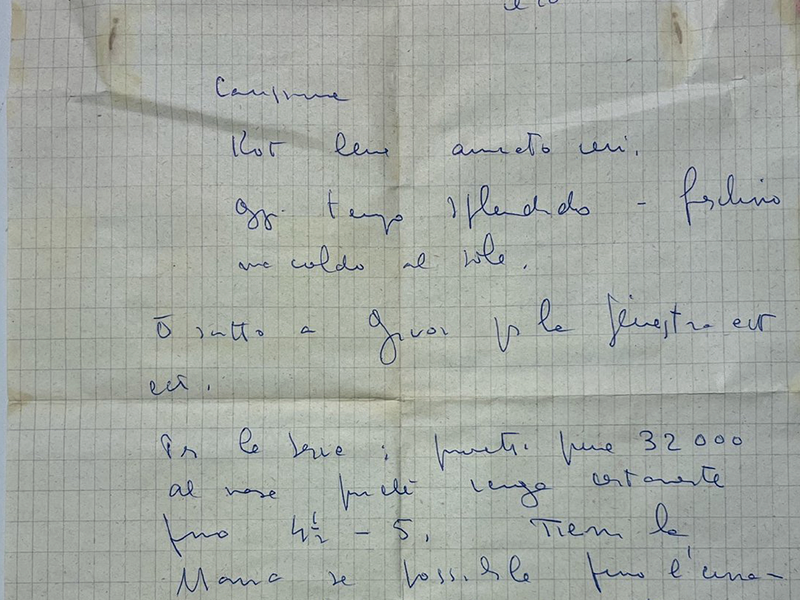 Carissime
Kot bene arrivato ieri.
Oggi tempo splendido - freschino
ma caldo al sole.
O scritto a p la finestra ect
ect.
Per la serie : pure 32000
al mese purchè venga certamente
fino 4½ - 5. Tieni la
Maria se possibile fino l'una-